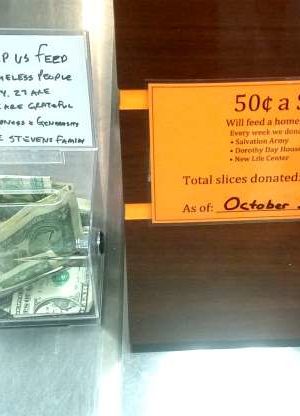 P US FEED
MELESS PEOPLE
Y. 27 ARE
ARE GRATEFUL
GENEROSITY
STEVENS FAMILY
50¢ a S
Will feed a home
Every week we dona
• Salvation Army
• Dorothy Day House
• New Life Center
Total slices donated:
As of: October